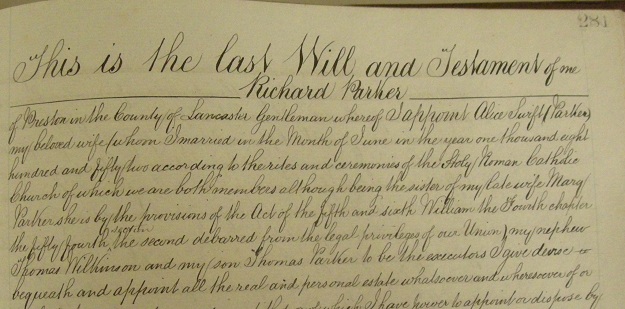 281
This is the last Will and Testament of me
Richard Parker
of Preston in the County of Lancaster Gentleman whereof I appoint Alice Swift (Parker)
my beloved wife (whom I married in the Month of June in the year one thousand eight
hundred and fifty two according to the rites and ceremonies of the Holy Roman Catholic
Church of which we are both members although being the sister of my late wife Mary
Parker she is by the provisions of the Act of the fifth and sixth William the Fourth chapter
the fifty fourth section the second debarred from the legal privileges of our Union) my nephew
Thomas Wilkinson and my son Thomas Parker to be the executors I give devise
bequeath and appoint all the real and personal estate whatsoever and wheresoever of or
which I have power to appoint or dispose by